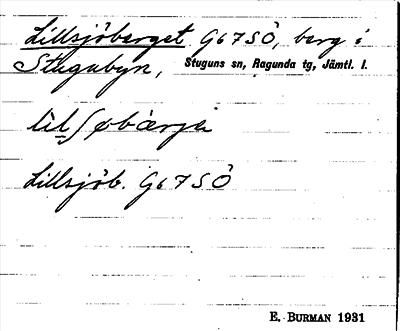 Lillsjöberget G67SÖ, berg i
Stugubyn, Stuguns sn, Ragunda tg, Jämtl. l.
Lillsjöb. G67SÖ
E. BURMAN 1931